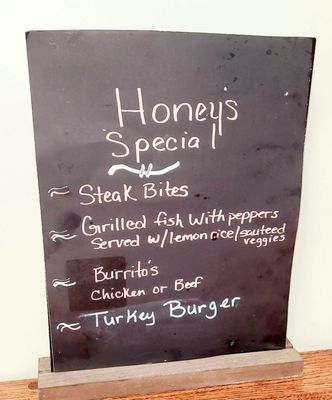 Honey's
Special
~ Steak Bites
~ Grilled fish with peppers
Served w/lemon rice/sauteed
veggies
~ Burrito's
Chicken or Beef
~ Turkey Burger